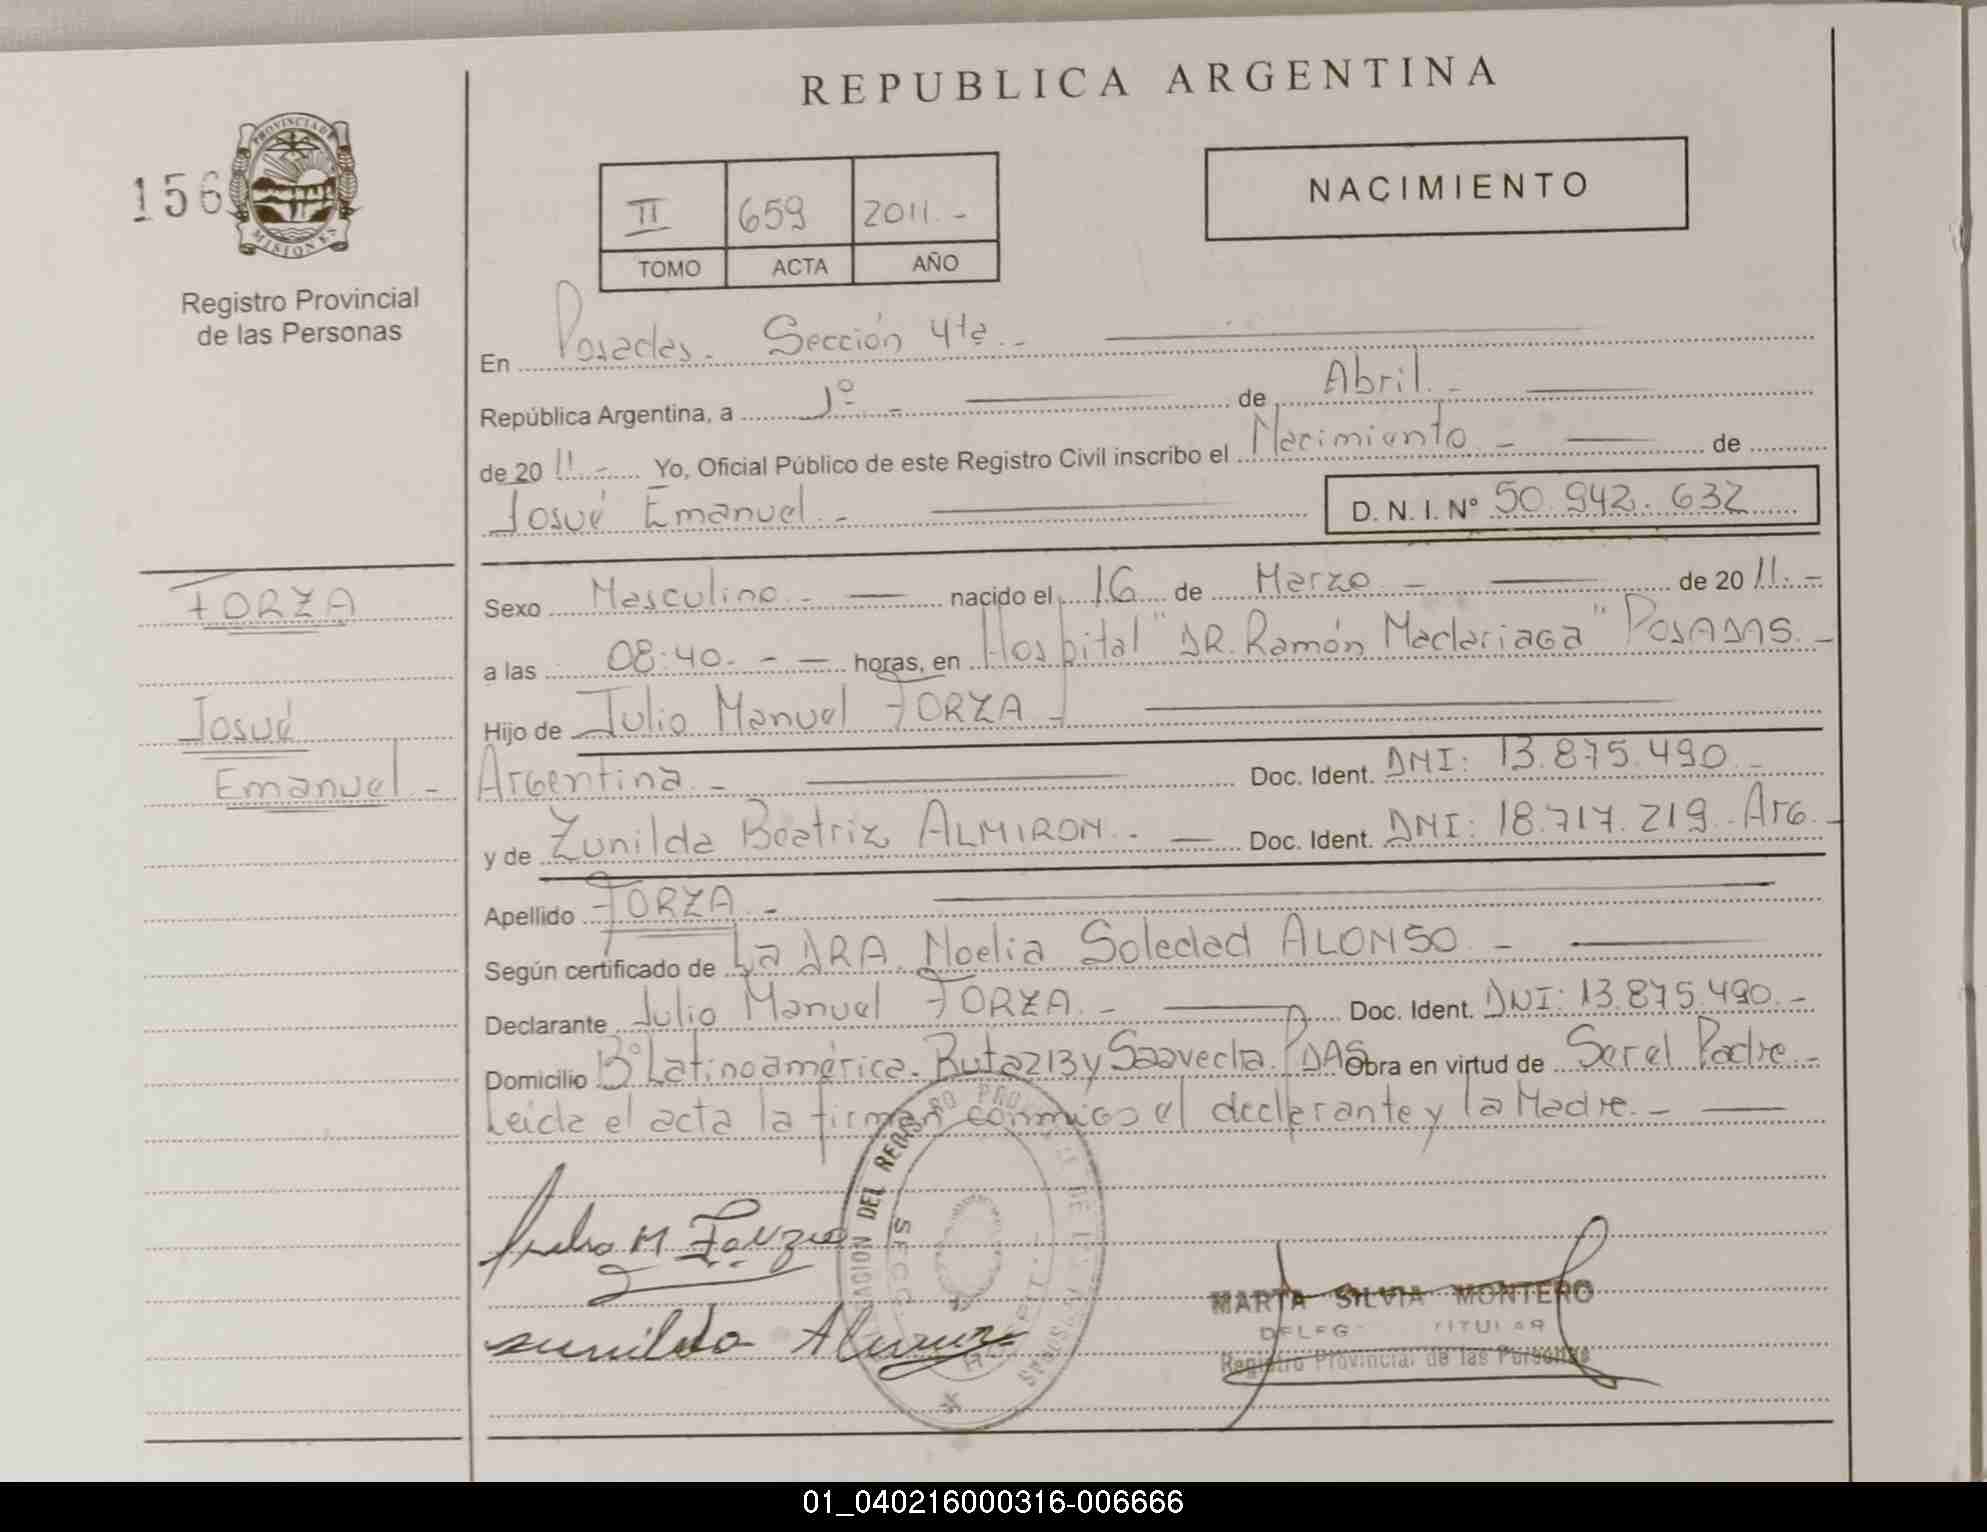 REPUBLICA ARGENTINA
156
PROVINCIA DE
MISIONES
Registro Provincial
de las Personas
II 659 2011.-
TOMO ACTA AÑO
NACIMIENTO
En Posadas. Sección 4ta.-
República Argentina, a 1º.- de Abril.-
de 20 11.- Yo, Oficial Público de este Registro Civil inscribo el Nacimiento.- de
Josué Emanuel.- D. N. I. Nº 50.942.632
FORZA
Josué
Emanuel.-
Sexo Masculino.- nacido el 16 de Marzo.- de 20 11.-
a las 08:40.- - horas, en Hospital "DR. Ramón Madariaga" POSADAS.-
Hijo de Julio Manuel FORZA.-
Argentina.- Doc. Ident. DNI: 13.875.490.-
y de Zunilda Beatriz ALMIRON.- Doc. Ident. DNI: 18.717.219. Arg.-
Apellido FORZA.-
Según certificado de La DRA. Noelia Soledad ALONSO.-
Declarante Julio Manuel FORZA.- Doc. Ident. DNI: 13.875.490.-
Domicilio Bº Latinoamérica. Ruta 213 y Saavedra. PDAS Obra en virtud de Ser el Padre.-
Leída el acta la firman conmigo el declarante y la Madre.-
M. Forza
Zunilda
MARTA SILVIA MONTERO
TITULAR
Registro Provincial de las Personas
01_040216000316-006666